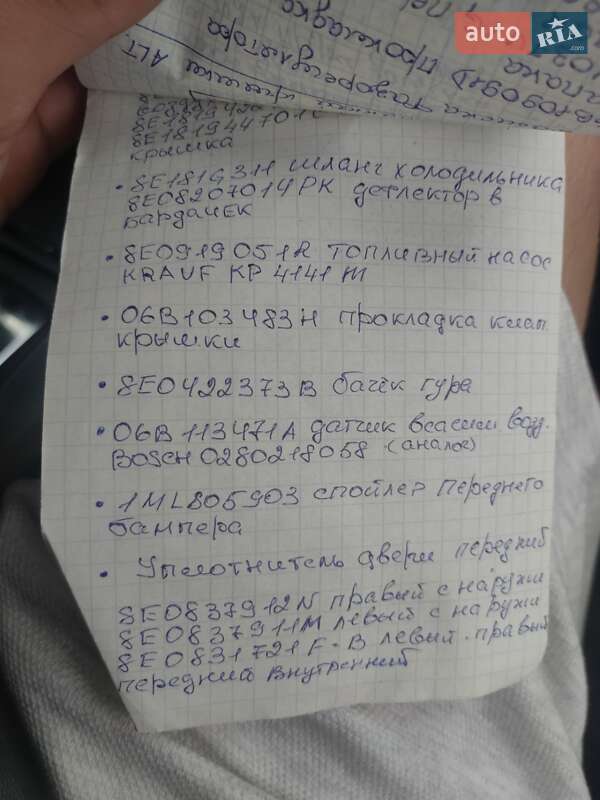 auto RIA .com
06B109092D прокладка
газорегулятора
ALT.
8E1819447011
крышка
• 8E1819311 шланг холодильника
8E08207014PK детлектор в
бардачек
• 8E0919051R топливный насос
KRAUF KP 4141 M
• 06B103483H прокладка клап.
крышки
• 8E0422373B бачёк гура
• 06B113471A датчик всасыв возд.
BOSCH 0280218058 (аналог)
• 1ML805903 спойлер переднего
бампера
• Уплотнитель двери передний
8E0837912N правый с наружи
8E0837911M левый с наружи
8E0831721F-B левый-правый
передний внутренний